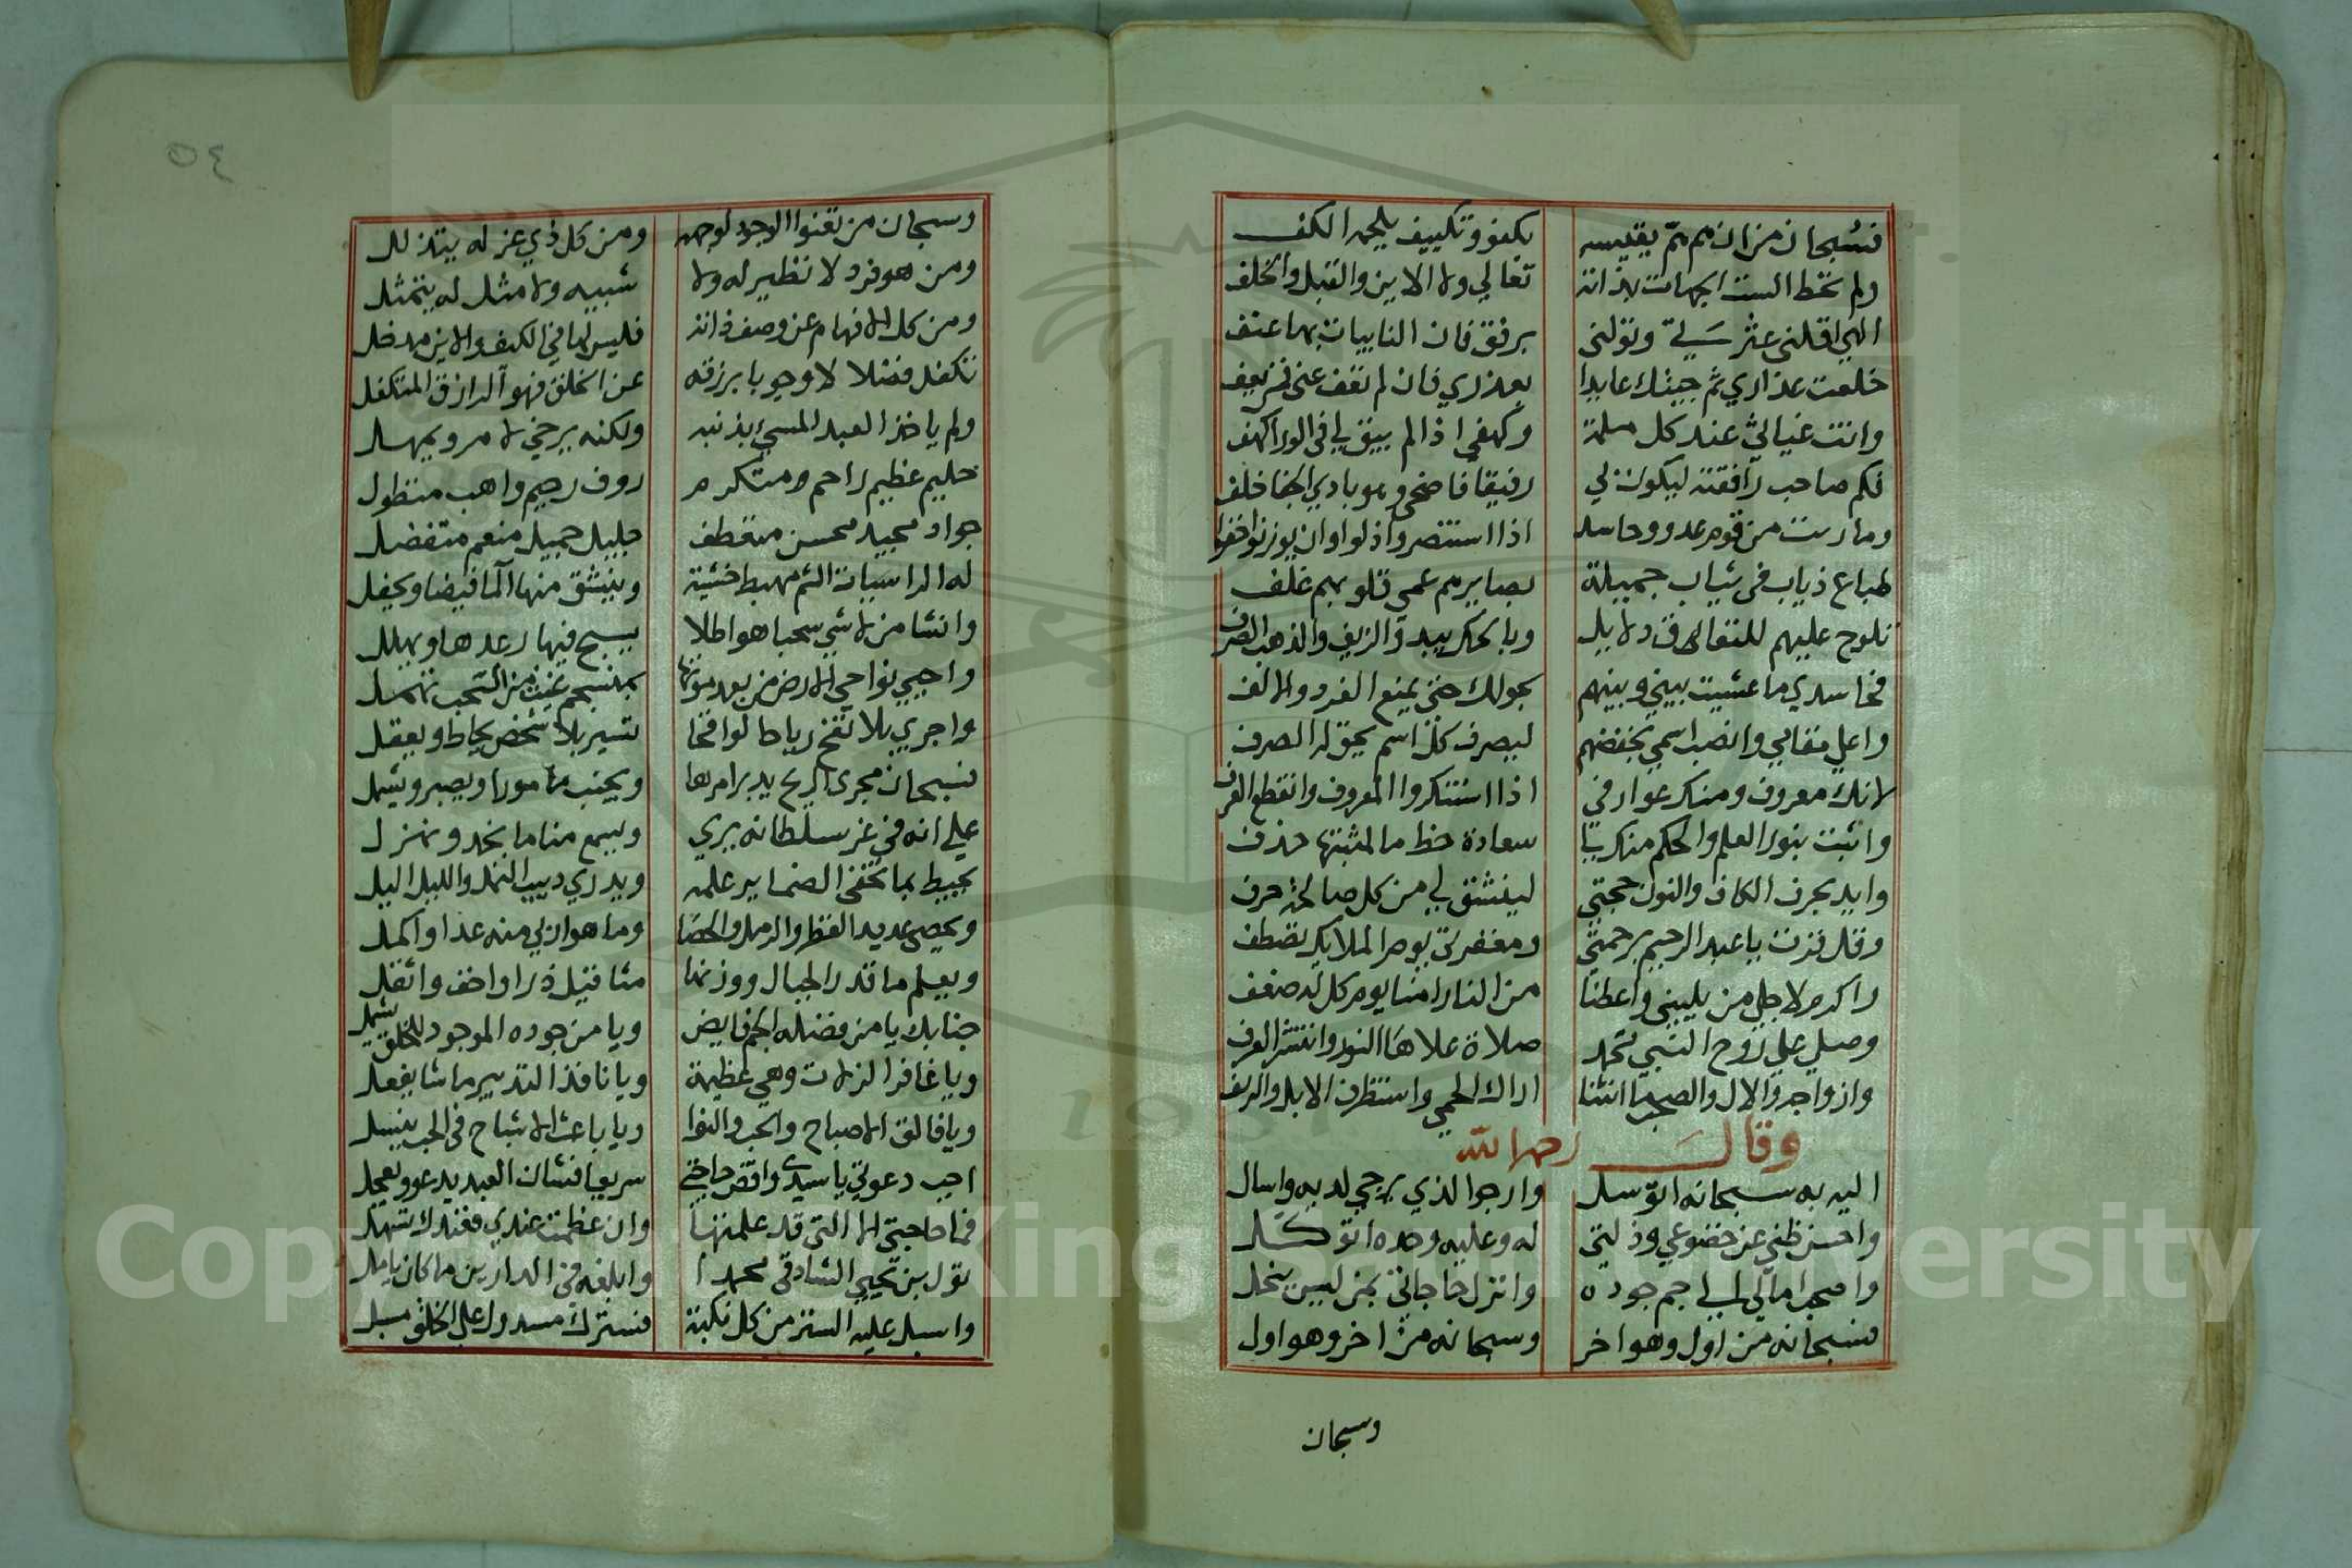 فسبحان من ان هم هم يقيسه بكفو وتكييف يلجمه الكف
ولم تحط الست الجهات بذاته تعالي ولا الاين والقبل والخلف
الهي اقلني عثرتي وتولني برفق فان النايبات بها عنف
خلعت عذاري ثم جيتك عايدا بعذري فان لم تعف عني فمن يعف
وانت غياثي عند كل ملمة وكهفي اذا لم يبق لي في الورا كهف
فكم صاحب رافقته ليكون لي رفيقا فاضحي وهو بادي الجفا خلف
وما رست من قوم عدو وحاسد اذا استنصروا ذلوا وان يوزنوا خفوا
طباع ذياب في ثياب جميلة بصايرهم عمي قلوبهم غلف
تلوح عليهم للنفاق دلايل وبالحك يبدو الزيف والذهب الصرف
فحا سدي ما عشيت بيني وبينهم بحولك حتي يمنع الفرد والالف
واعل مقامي وانصب اسمي بخفضهم ليصرف كل اسم يحق له الصرف
لانك معروف ومنك عوارفي اذا استنكروا المعروف وانقطع العرف
واثبت بنور العلم والحكم منك لي سعادة حظ ما لمثبتها حذف
وايد بحرف الكاف والنون حجتي لينشق لي من كل صالحة حرف
وقل فزت يا عبد الرحيم برحمتي ومغفرتي يوم الملايك تصطف
واكرم لاجلي من يليني واعطنا من النار امنا يوم كل له ضعف
وصلي علي روح النبي محمد صلاة علاها النور وانتشر العرف
وازواجه والال والصحب ما انثنا اراك الحمي واستظرف الابل والريف
وقال رحمه الله
اليه به سبحانه اتوسل وارجوا الذي يرجي لديه واسال
واحسن ظني عن خضوعي وذلتي له وعليه وحده اتوكل
واصحب امالي الي جم جوده وانزل حاجاتي بمن ليس يبخل
فسبحانه من اول وهو اخر وسبحانه من اخر وهو اول
وسبحان
٥٤
وسبحان من تعنوا الوجوه لوجهه ومن كل ذي عز له يتذلل
ومن هو فرد لا نظير له ولا شبيه ولا مثل له يتمثل
ومن كلت الافهام عن وصف ذاته فليس لها في الكيف والاين مدخل
تكفل فضلا لا وجوبا برزقه عن الخلق فهو الرازق المتكفل
ولم ياخذ العبد المسيء بذنبه ولكنه يرخي لامر ويمهل
حليم عظيم راحم متكرم روف رحيم واهب متطول
جواد مجيد محسن متعطف جليل جميل منعم متفضل
له الراسيات الشم تهبط خشية وينشق منها الما فيضا ويحفل
وانشا من لا شي سحبا هواطلا يسبح فيها رعدها ويهلل
واحيي نواحي الارض من بعد موتها بمنسجم غيث من السحب تهمل
واجري بلا نفخ رياحا لواقحا تسير بلا شخص يحاط ويعقل
فسبحان مجري الريح يدبر امرها ويجنب مامورا ويصبر ويشمل
علي انه في عز سلطانه يري ويسمع منا ما نجد ونهزل
يحيط بما تخفي الضماير علمه ويدري دبيب النمل والليل اليل
ويحصي عديد القطر والرمل والحصا وما هو ادني منه عدا واكمل
ويعلم ما قدر الجبال ووزنها مثاقيل ذرا واخف واثقل
جنابك يا من فضله الجم فايض ويا من جوده الموجود للخلق يشمل
ويا غافر الزلات وهي عظيمة ويا نافذ التدبير ما شا يفعل
ويا فالق الاصباح والحب والنوا ويا باعث الاشباح في الحب ينسل
اجب دعوتي يا سيدي واقض حاجتي سريعا فشان العبد يدعو ويعجل
فما حاجتي الا التي قد علمتها وان عظمت عندي فعندك تسهل
تول بن يحيي الشادقي محمدا وابلغه في الدارين ما كان يامل
واسبل عليه الستر من كل نكبة فسترك مسدول علي الخلق مسبل
Copyright King Saud University
1957